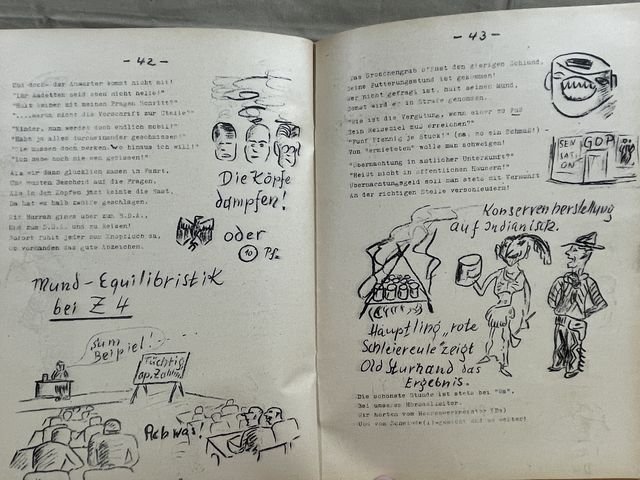 - 42 -
Und doch- der Anwärter kommt nicht mit!
"Ihr Kadetten seid aber nicht helle!"
"Hält keiner mit meinen Fragen Schritt?"
"....warum nicht die Vorschrift zur Stelle"
"Kinder, nun werdet doch endlich mobil!
"Habt ja alles durcheinander geschmissen!
"Sie müssen doch merken, wo hinaus ich will!
"Ich habe noch nie wen gebissen!"
Als wir dann glücklich sassen in Fahrt,
Und wussten Bescheid auf die Fragen,
Als in den Köpfen jetzt keinte die Saat,
Da hat es halb zwölfe geschlagen.
Mit Hurrah gings über zum B.D.A.,
Und zum D.G.B. uns zu Reizen!
Sofort fuhlt jeder zum Knopfloch
Ob vorhanden das gute Abzeichen.
Die Köpfe
dampfen!
oder
10 Pf.
Mund-Equilibristik
bei Z 4
Zum
Beipiel!
Tüchtig
op. Zahlm!
Ach was!
- 43 -
Das Groschengrab öffnet den gierigen Schlund,
Seine Fütterungsstund ist gekommen!
Wer nicht gefragt ist, halt seinen Mund,
Sonst wird er in Strafe genommen.
"Wie ist die Vergütung, wenn einer zu Fuß
Sein Reiseziel zu erreichen?"
"Fünf Pfennig je Stück!" (na, so ein Schmuß!) -
Von "Ermieteten" wolle man schweigen!
"Übernachtung in amtlicher Unterkunft?"
"Reist nicht in öffentlichen Häusern!"
Übernachtungsgeld soll man stets mit Vernunft
An der richtigen Stelle verschleudern!
SEN
SATI
ON
GOP
Konservenherstellung
auf Indianisch.
Häuptling „rote
Schleiereule" zeigt
Old Sturhand das
Ergebnis.
Die schönste Stunde ist stets bei
Bei unserem Hörsaalleiter.
Wir hörten vom
Und vom
und so weiter!